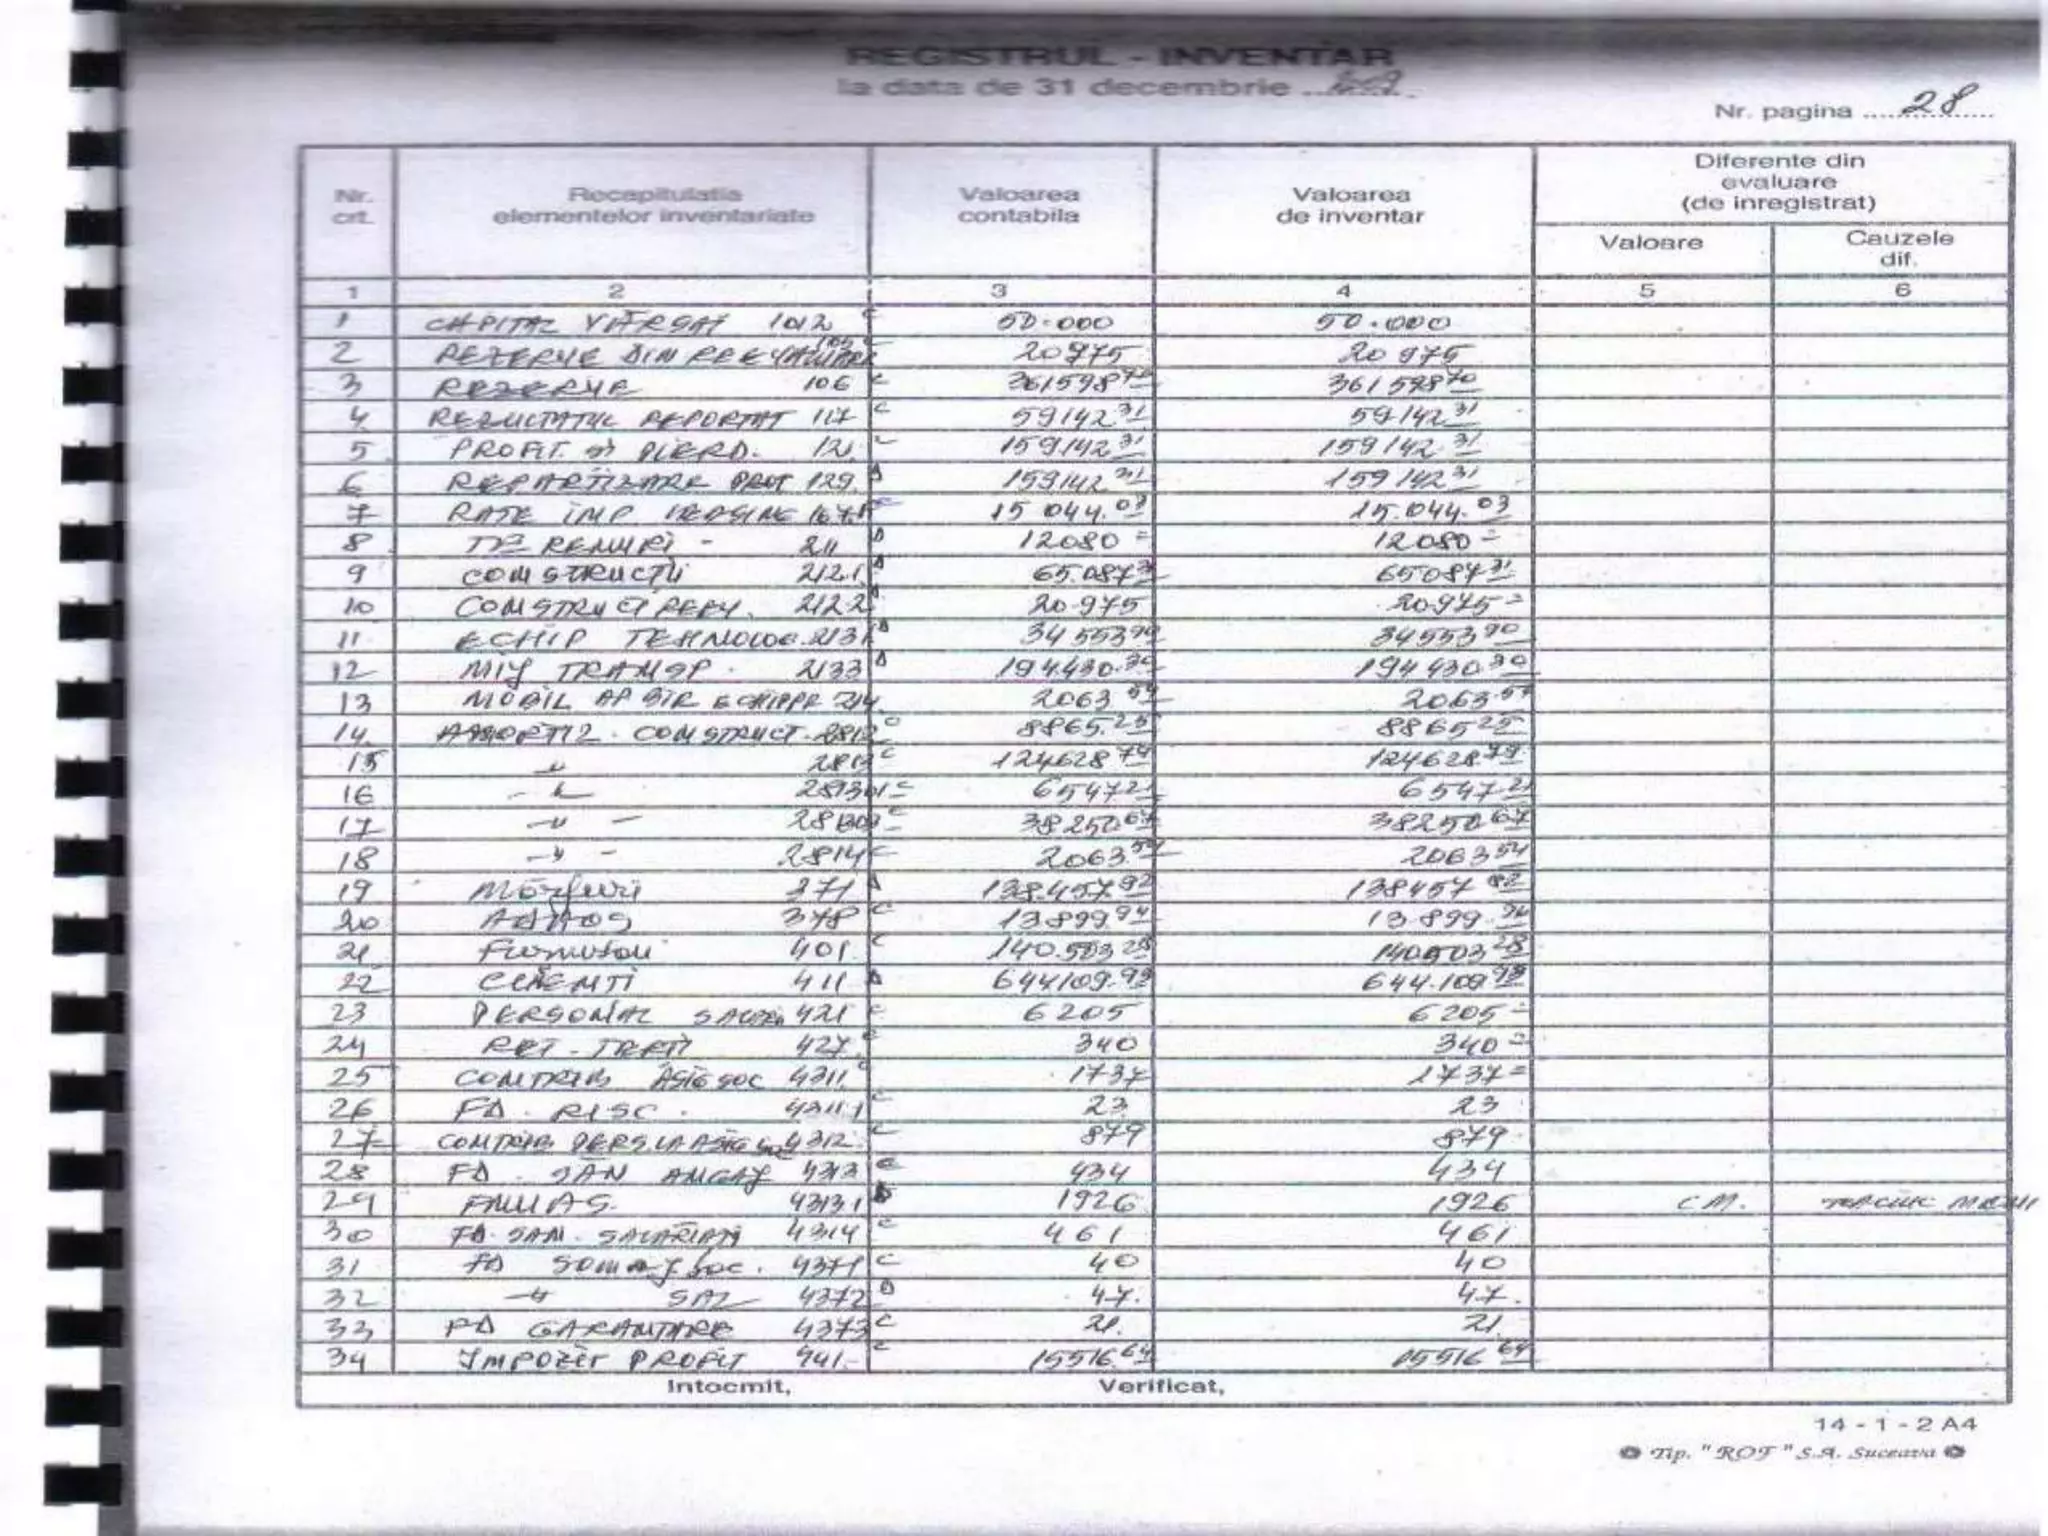 REGISTRUL - INVENTAR
la data de 31 decembrie
Nr. pagina 28
Nr. crt. Recapitulatia elementelor inventariate Valoarea contabila Valoarea de inventar Diferente din evaluare (de inregistrat)
Valoare Cauzele dif.
1 2 3 4 5 6
1 CAPITAL VĂRSAT 1012 C 50.000 50.000
2 REZERVE DIN REEVALUARE 105 C 20975 20975
3 REZERVE 106 C 361598 70 361598 70
4 REZULTATUL REPORTAT 117 C 59142 31 59142 31
5 PROFIT si PIERD. 121 159142 31 159142 31
6 REPARTIZARE PROF 129 D 159142 31 159142 31
7 RATE IMP. 15 044.03 15.044.03
8 TERENURI - 211 D 12080 = 12080 =
9 CONSTRUCTII 212.1 D 65.087 31 65087 31
10 CONSTRUCT REEV. 212.2 20.975 20.975 =
11 ECHIP TEHNOLOG. 2131 D 34553 90 34553 90
12 MIJ TRANSP. 2133 D 194.430.30 194 430 30
13 MOBIL AP BIR 214 2063 54 2063.54
14 AMORTIZ. CONSTRUCT. 2812 8865.25 8865 25
15 -"- C 124628 79 124628.79
16 -"- C 6547 21 6547 21
17 -"- C 38250.67 38250 67
18 -"- 2814 C 2063.54 2063 54
19 Mărfuri 371 D 138.457.82 138457 82
20 ADAOS 378 C 13.899.94 13.899.94
21 Furnizori 401 C 140.503 28 140503 28
22 CLIENTI 411 D 644109.93 644.109 93
23 PERSONAL SALARII 421 C 6205 6205 =
24 RET. TERTI 427 C 340 340 =
25 CONTRIB ASIG SOC 4311 C 1737 1737 =
26 FD. RISC. 4311 1 C 23 23
27 CONTRIB PERS LA ASIG SOC 4312 C 879 879
28 FD. SAN ANGAJ 4313 C 434 434
29 FNUAS. 4313.1 D 1926 1926 C M.
30 FD. SAN. SALARIATI 4314 C 461 461
31 FD SOMAJ SOC. 4371 C 40 40
32 -"- SAL 4372 D 47. 47.
33 FD GARANTARE 4373 C 21. 21
34 IMPOZIT PROFIT 441 C 15516.64 15516 64
Intocmit, Verificat,
14 - 1 - 2 A4
Tip. "ROF" S.A. Suceava